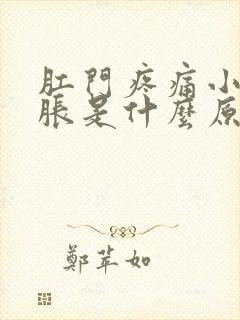 肛門疼痛小
脹是什麼原
鄭苹如